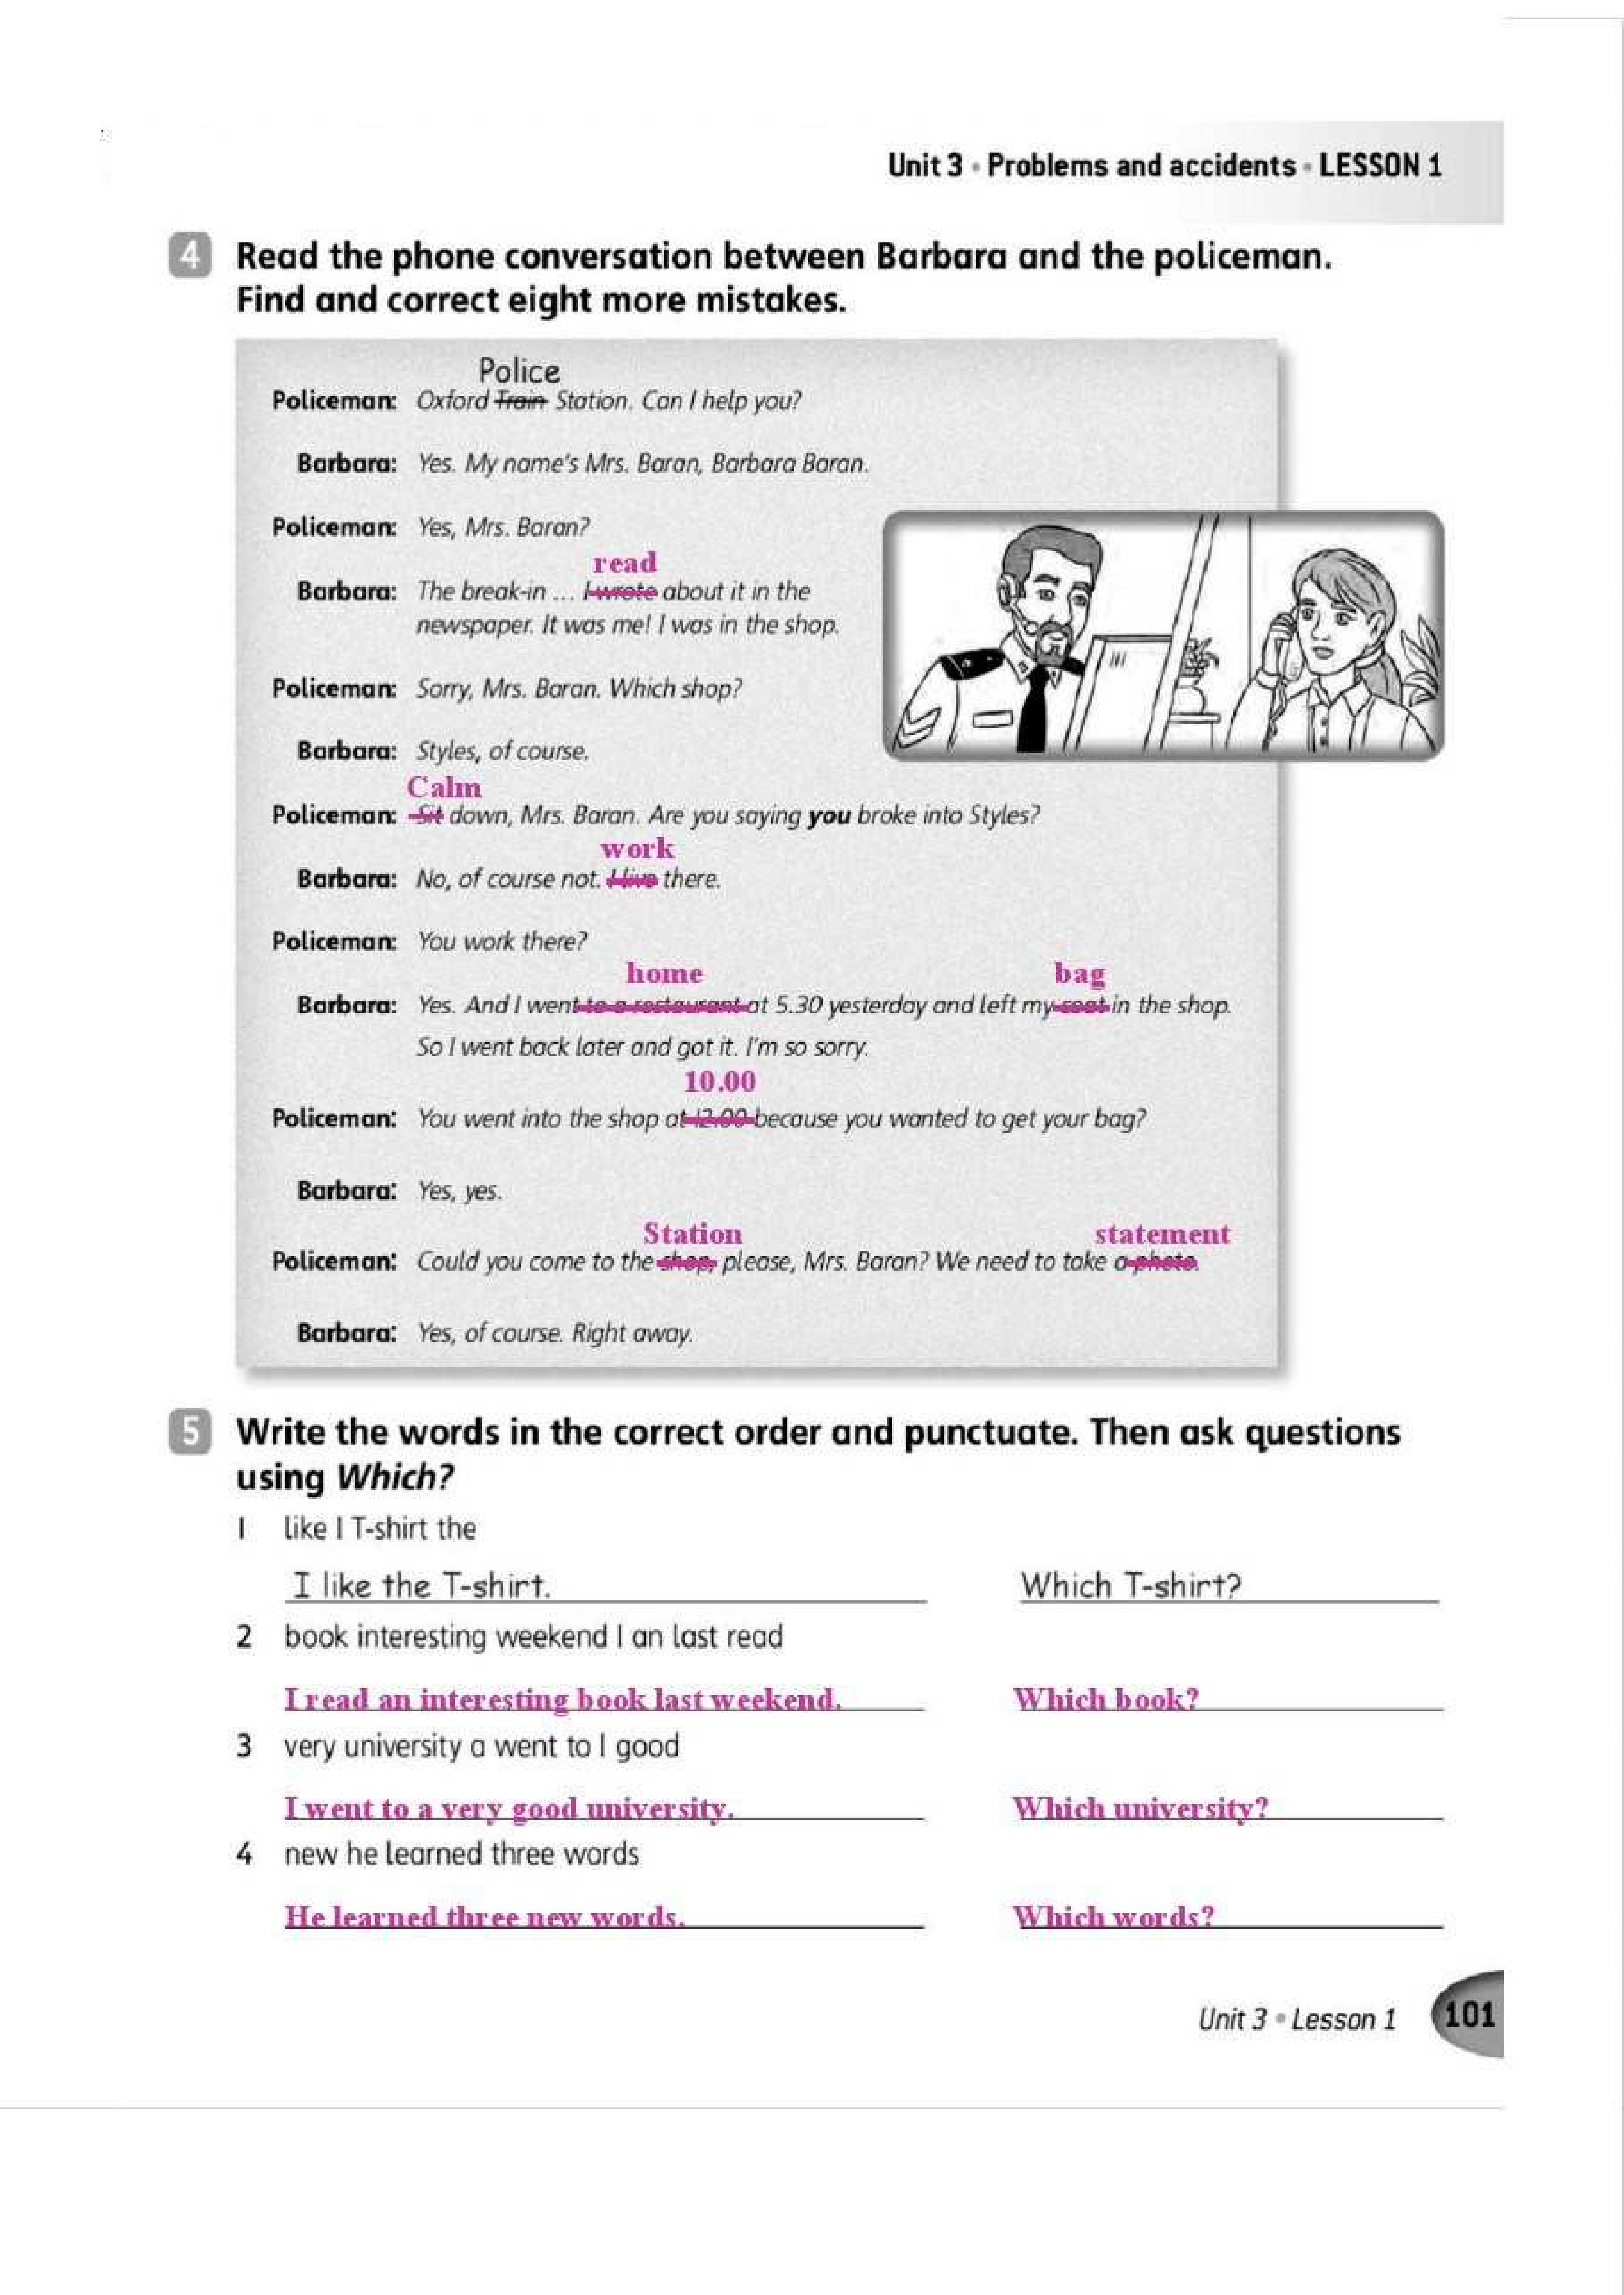 Unit 3 • Problems and accidents • LESSON 1
4 Read the phone conversation between Barbara and the policeman.
Find and correct eight more mistakes.
Police
Policeman: Oxford Train Station. Can I help you?
Barbara: Yes. My name's Mrs. Baran, Barbara Baran.
Policeman: Yes, Mrs. Baran?
read
Barbara: The break-in ... I wrote about it in the
newspaper. It was me! I was in the shop.
Policeman: Sorry, Mrs. Baran. Which shop?
Barbara: Styles, of course.
Calm
Policeman: Sit down, Mrs. Baran. Are you saying you broke into Styles?
work
Barbara: No, of course not. I live there.
Policeman: You work there?
home bag
Barbara: Yes. And I went to a restaurant at 5.30 yesterday and left my coat in the shop.
So I went back later and got it. I'm so sorry.
10.00
Policeman: You went into the shop at 12.00 because you wanted to get your bag?
Barbara: Yes, yes.
Station statement
Policeman: Could you come to the shop, please, Mrs. Baran? We need to take a photo.
Barbara: Yes, of course. Right away.
5 Write the words in the correct order and punctuate. Then ask questions
using Which?
1 like I T-shirt the
I like the T-shirt. Which T-shirt?
2 book interesting weekend I an last read
I read an interesting book last weekend. Which book?
3 very university a went to I good
I went to a very good university. Which university?
4 new he learned three words
He learned three new words. Which words?
Unit 3 • Lesson 1 101